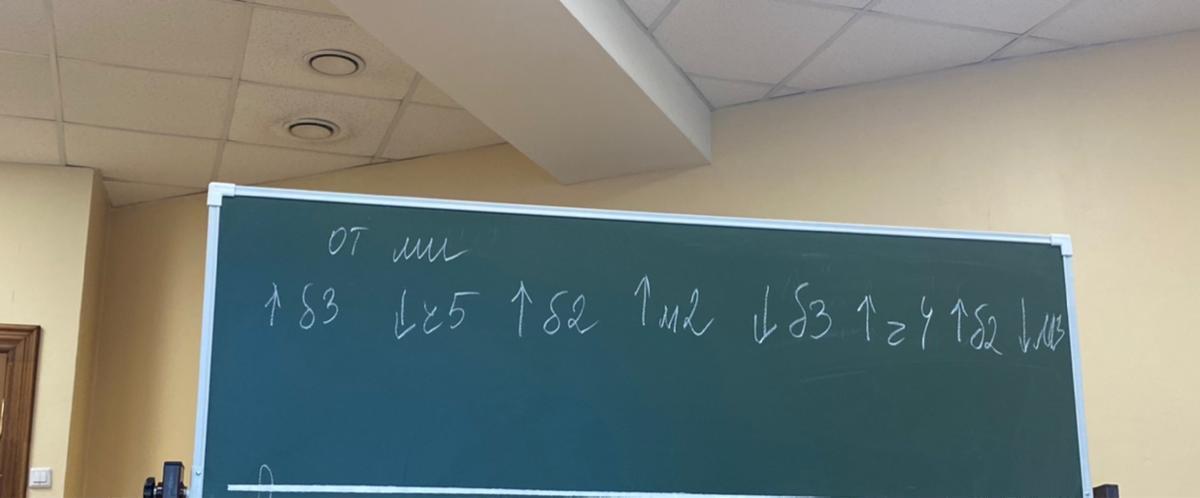 от ми
↑ б3 ↓ ч5 ↑ б2 ↑ м2 ↓ б3 ↑ ч4 ↑ б2 ↓ м3